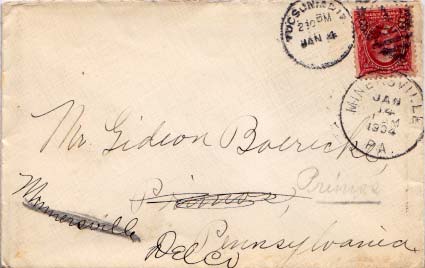 TUCSON
2 30 PM
JAN 4
MINERSVILLE
JAN
14
M
1904
PA.
Mr. Gideon Boericke,
Primose, Primos
Minnersville
Delco
Pennsylvania